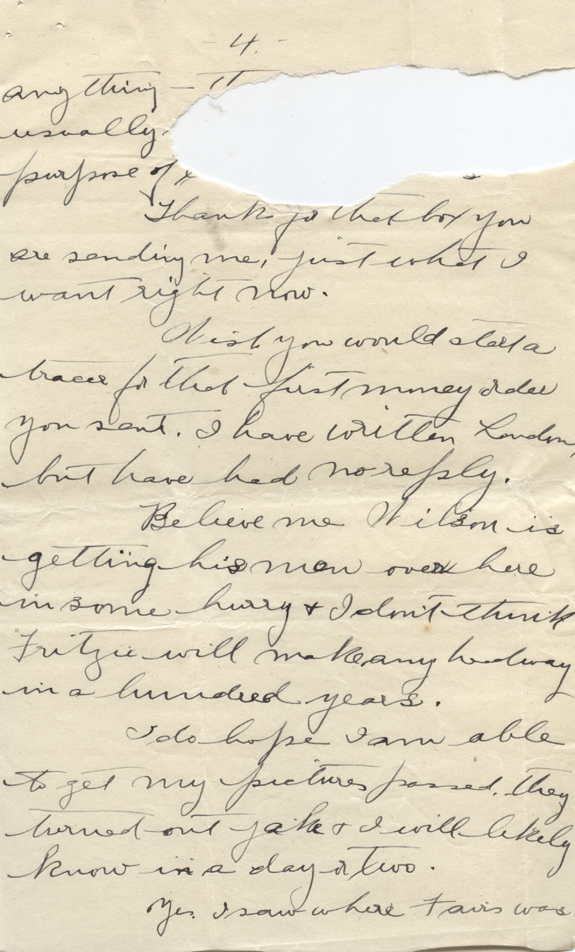 - 4. -
anything -
usually
purpose of
Thanks for that box you
are sending me, just what I
want right now.
Wish you would start a
tracer for that first money order
you sent. I have written London,
but have had no reply.
Believe me Wilson is
getting his men over here
in some hurry & I don't think
Fritzie will make any headway
in a hundred years.
I do hope I am able
to get my pictures passed. they
turned out jake & I will likely
know in a day or two.
Yes. I saw where was